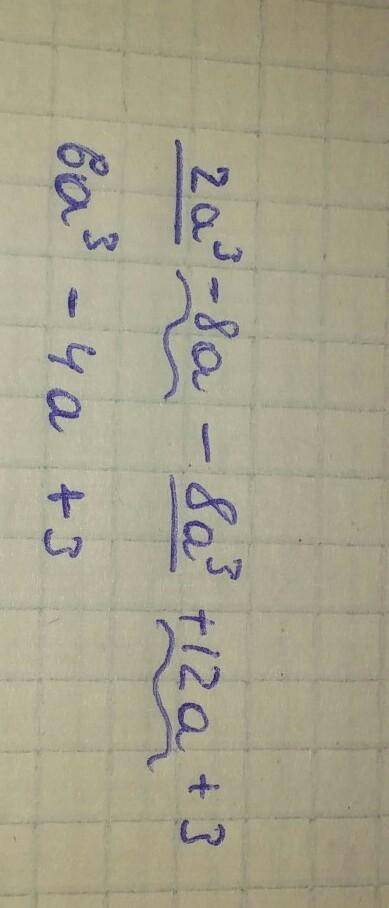 2a³ - 8a - 8a³ + 12a + 3
6a³ - 4a + 3